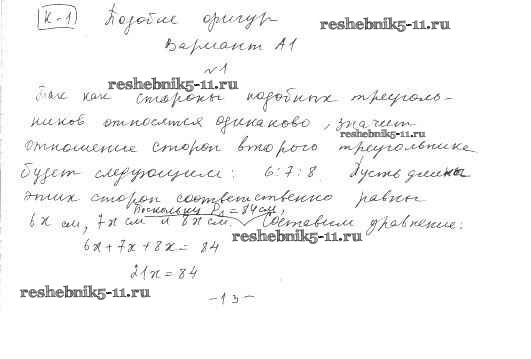 К-1 Подобие фигур
Вариант А1
№1
Так как стороны подобных треуголь-
ников относятся одинаково, значит
отношение сторон второго треугольника
будет следующим: 6:7:8. Пусть длины
этих сторон соответственно равны
Поскольку P₁ = 84 см,
6x см, 7x см и 8x см. Составим уравнение:
6x + 7x + 8x = 84
21x = 84
- 13 -
reshebnik5-11.ru
reshebnik5-11.ru
reshebnik5-11.ru
reshebnik5-11.ru
reshebnik5-11.ru